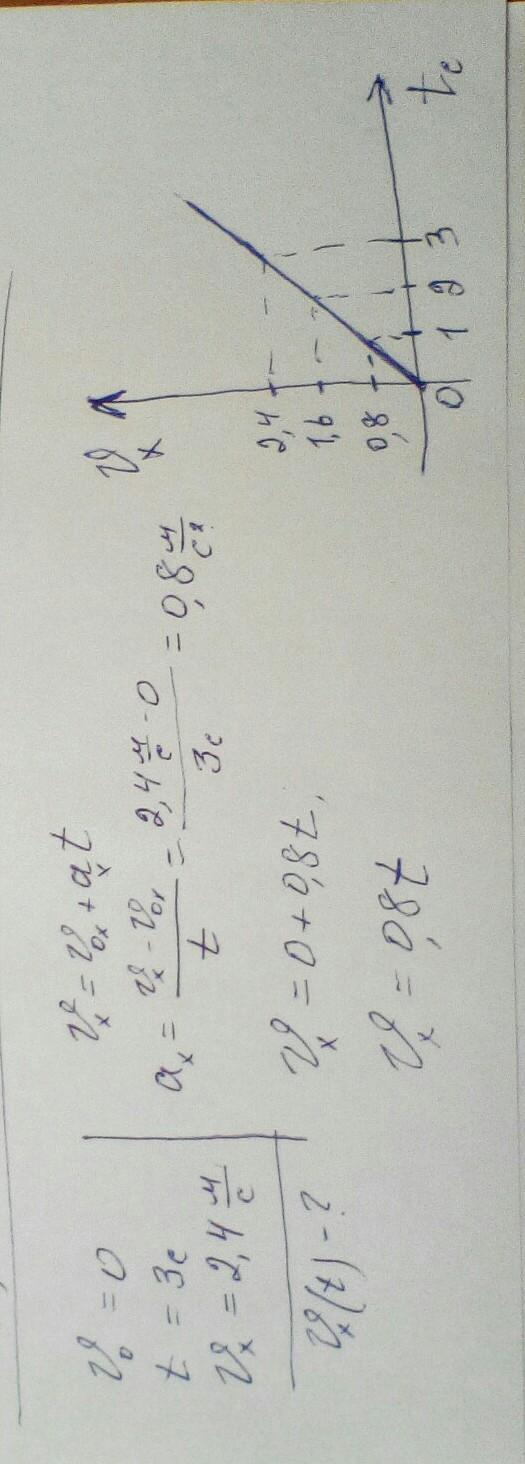 v₀ = 0
t = 3с
vₓ = 2,4 м/с
vₓ(t) - ?
vₓ = v₀ₓ + aₓt
aₓ = (vₓ - v₀ₓ)/t = (2,4 м/с - 0)/3с = 0,8 м/с²
vₓ = 0 + 0,8t,
vₓ = 0,8t
vₓ
2,4
1,6
0,8
0 1 2 3 t с